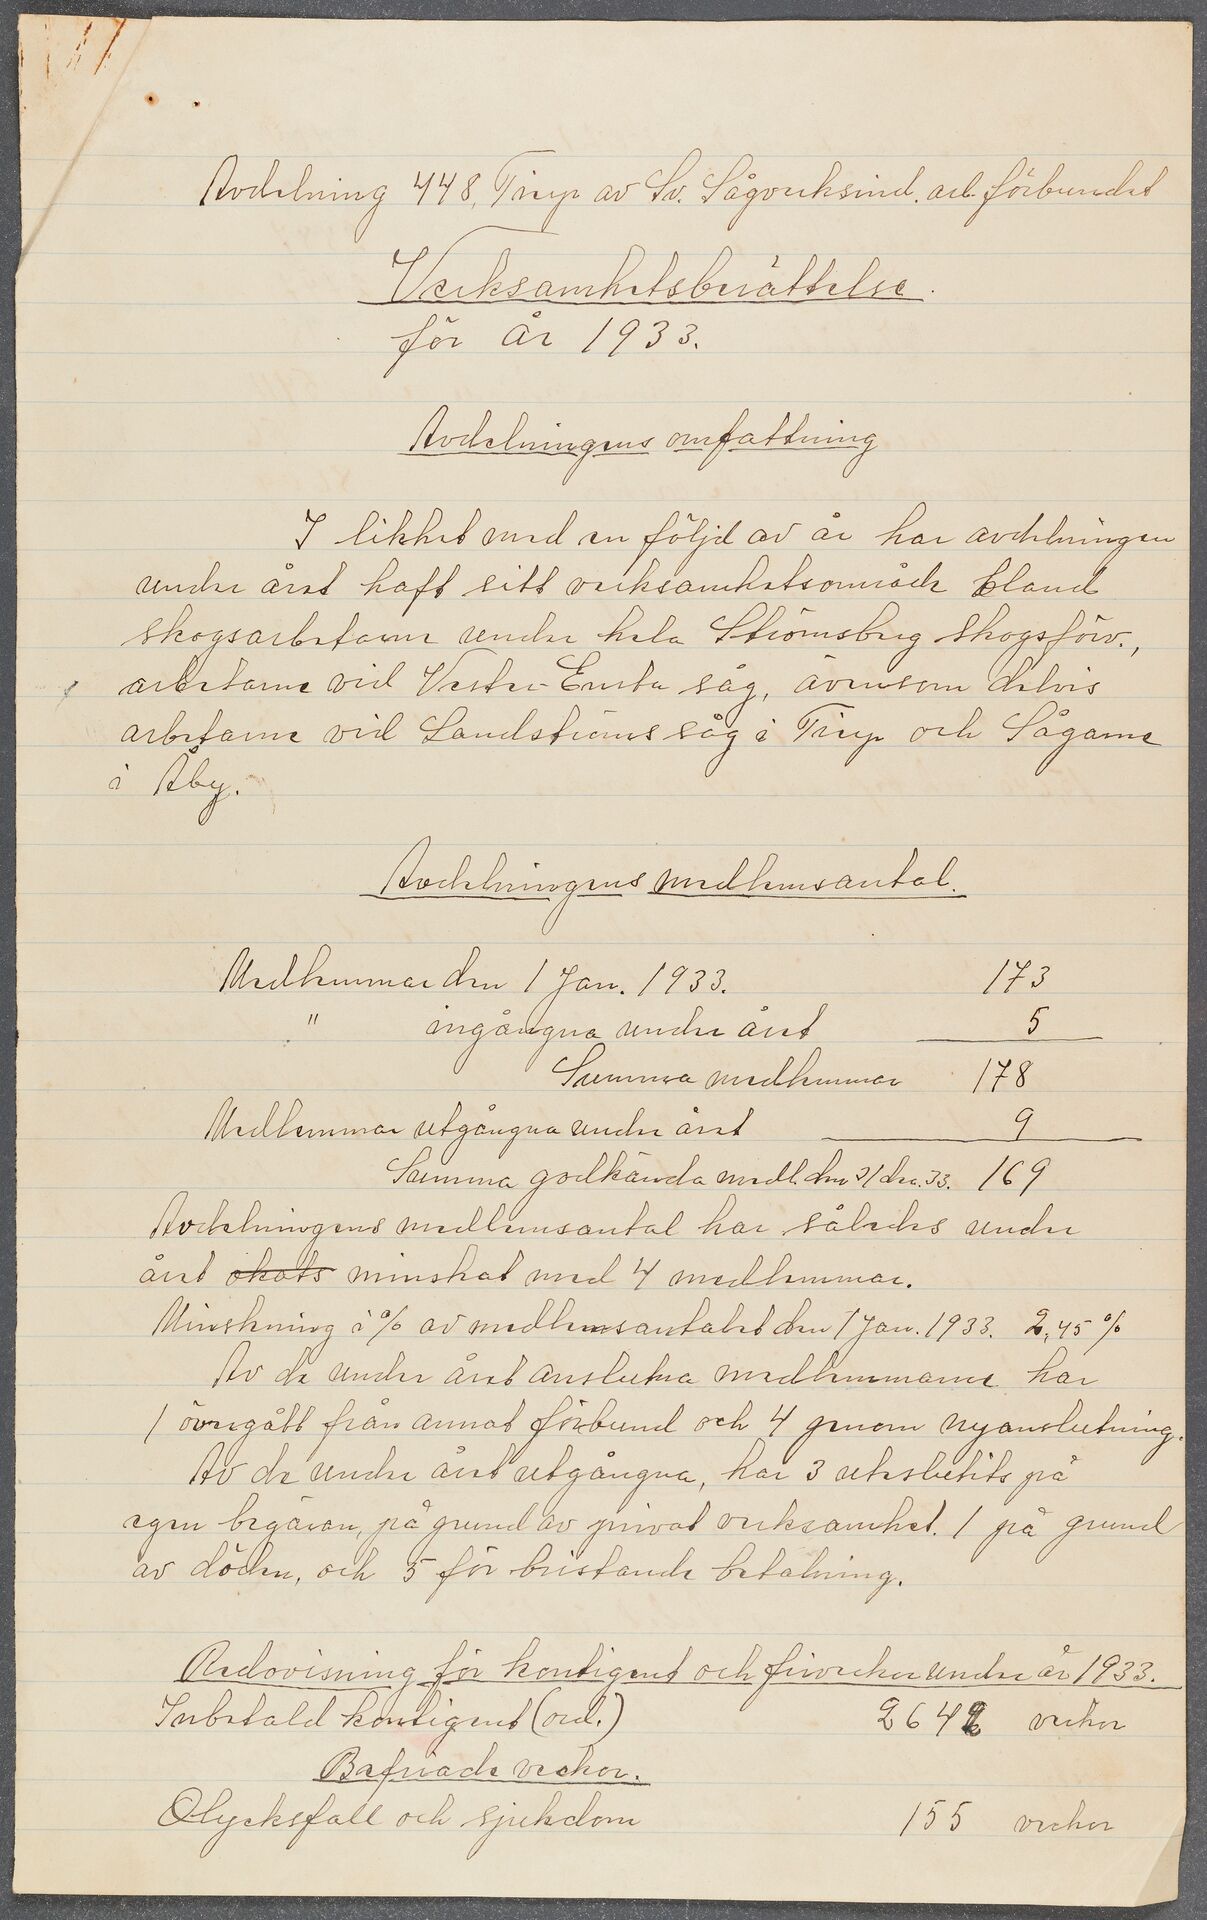 Avdelning 448, Tierp av Sv. Sågverksind. arb. förbundet
Verksamhetsberättelse.
för år 1933.
Avdelningens omfattning
I likhet med en följd av år har avdelningen
under året haft sitt verksamhetsområde bland
skogsarbetarne under hela Strömsberg skogsförv.,
arbetarne vid Vester-Ensta såg, ävensom delvis
arbetarne vid Sandströms såg i Tierp och Sågarne
i Åby.
Avdelningens medlemsantal.
Medlemmar den 1 Jan. 1933. 173
" ingångna under året 5
Summa medlemmar 178
Medlemmar utgångna under året 9
Summa godkända medl. den 31 dec. 33. 169
Avdelningens medlemsantal har således under
året ökats minskat med 4 medlemmar.
Minskning i % av medlemsantalet den 1 Jan. 1933. 2,45 %
Av de under året anslutna medlemmarne har
1 övergått från annat förbund och 4 genom nyanslutning.
Av de under året utgångna, har 3 uteslutits på
egen begäran, på grund av privat verksamhet. 1 på grund
av döden, och 5 för bristande betalning.
Redovisning för kontigent och friveckor under år 1933.
Inbetald kontigent (ord.) 2642 veckor
Befriade veckor.
Olycksfall och sjukdom 155 veckor